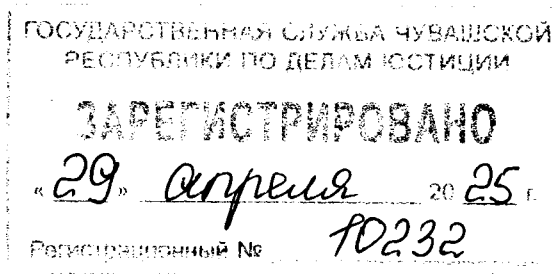 ГОСУДАРСТВЕННАЯ СЛУЖБА ЧУВАШСКОЙ
РЕСПУБЛИКИ ПО ДЕЛАМ ЮСТИЦИИ
ЗАРЕГИСТРИРОВАНО
«29» апреля 2025 г.
Регистрационный № 10232